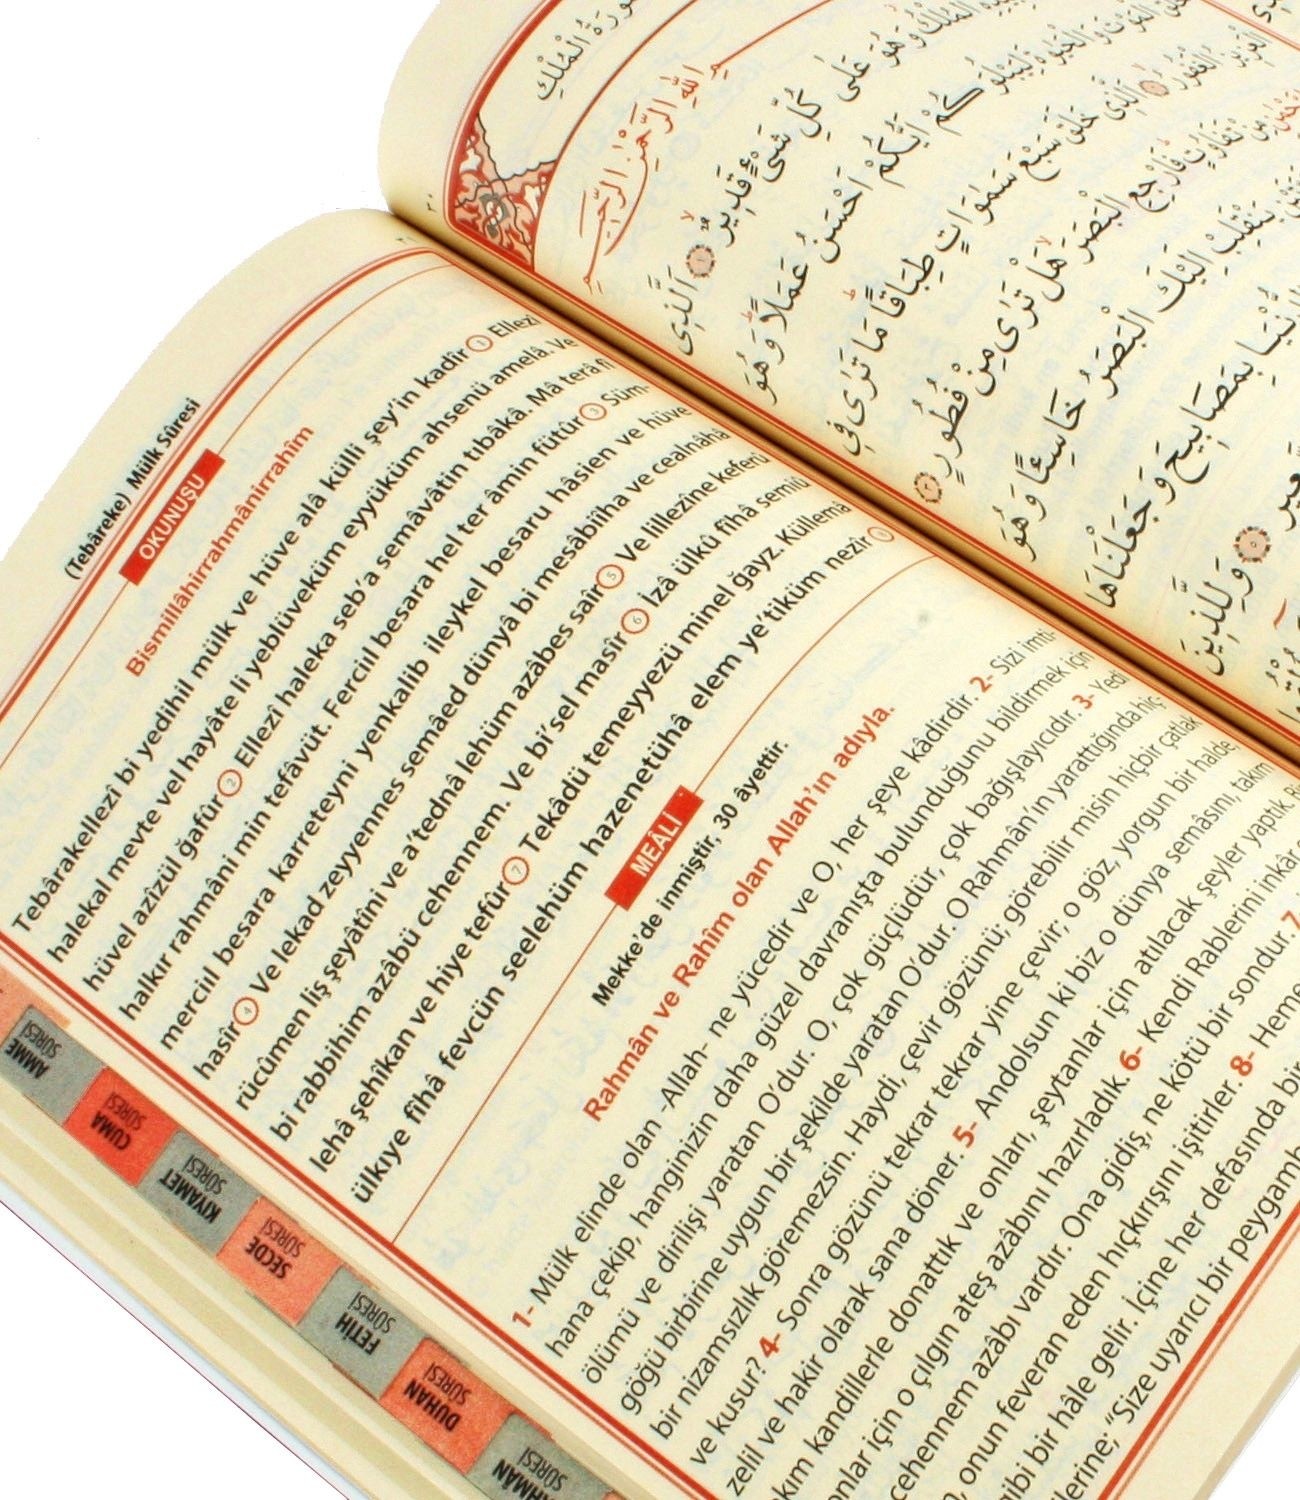 (Tebâreke) Mülk Sûresi
OKUNUŞU
Bismillâhirrahmânirrahîm
Tebârakellezî bi yedihil mülk ve hüve alâ külli şey'in kadîr 1 Ellezî
halekal mevte vel hayâte li yeblüveküm eyyüküm ahsenü amelâ. Ve
hüvel azîzül ğafûr 2 Ellezî haleka seb'a semâvâtin tıbâkâ. Mâ terâ fî
halkır rahmâni min tefâvüt. Ferciıl besara hel ter âmin fütûr 3 Süm-
merciıl besara karreteyni yenkalib ileykel besaru hâsien ve hüve
hasîr 4 Ve lekad zeyyennes semâed dünyâ bi mesâbiîha ve cealnâhâ
rücûmen liş şeyâtîni ve a'tednâ lehüm azâbes saîr 5 Ve lillezîne keferû
bi rabbihim azâbü cehennem. Ve bi'sel masîr 6 İzâ ülkû fîhâ semiû
lehâ şehîkan ve hiye tefûr 7 Tekâdü temeyyezü minel ğayz. Küllemâ
ülkıye fîhâ fevcün seelehüm hazenetühâ elem ye'tiküm nezîr 8
MEÂLİ
Mekke'de inmiştir, 30 âyettir.
Rahmân ve Rahîm olan Allah'ın adıyla.
1- Mülk elinde olan -Allah- ne yücedir ve O, her şeye kâdirdir. 2- Sizi imti-
hana çekip, hanginizin daha güzel davranışta bulunduğunu bildirmek için
ölümü ve dirilişi yaratan O'dur. O, çok güçlüdür, çok bağışlayıcıdır. 3- Yedi
göğü birbirine uygun bir şekilde yaratan O'dur. O Rahmân'ın yarattığında hiç-
bir nizamsızlık göremezsin. Haydi, çevir gözünü; görebilir misin hiçbir çatlak
ve kusur? 4- Sonra gözünü tekrar tekrar yine çevir; o göz, yorgun bir halde,
zelil ve hakir olarak sana döner. 5- Andolsun ki biz o dünya semâsını, takım
kım kandillerle donattık ve onları, şeytanlar için atılacak şeyler yaptık.
onlar için o çılgın ateş azabını hazırladık. 6- Kendi Rablerini inkâr
cehennem azâbı vardır. Ona gidiş, ne kötü bir sondur. 7
onun feveran eden hıçkırışını işitirler. 8- Heme
gibi bir hâle gelir. İçine her defasında bir
lerine; "Size uyarıcı bir peygamb
AMME
SÛRESİ
CUMA
SÛRESİ
KIYAMET
SÛRESİ
SECDE
SÛRESİ
FETİH
SÛRESİ
DUHAN
SÛRESİ
HMAN
SÛRESİ
سُورَةُ الْمُلْكِ
بِسْمِ اللّٰهِ الرَّحْمٰنِ الرَّحِيمِ
الْمُلْكُ وَهُوَ عَلٰى كُلِّ شَىْءٍ قَدِيرٌ ١ اَلَّذِى
الْمَوْتَ وَالْحَيٰوةَ لِيَبْلُوَكُمْ اَيُّكُمْ اَحْسَنُ عَمَلًا وَهُوَ
الْعَزِيزُ الْغَفُورُ ٢ اَلَّذِى خَلَقَ سَبْعَ سَمٰوَاتٍ طِبَاقًا مَا تَرٰى فِى
مِنْ تَفَاوُتٍ فَارْجِعِ الْبَصَرَ هَلْ تَرٰى مِنْ فُطُورٍ ٣
يَنْقَلِبْ اِلَيْكَ الْبَصَرُ خَاسِئًا وَهُوَ
الدُّنْيَا بِمَصَابِيحَ وَجَعَلْنَاهَا
السَّعِيرِ ٥ وَلِلَّذِينَ